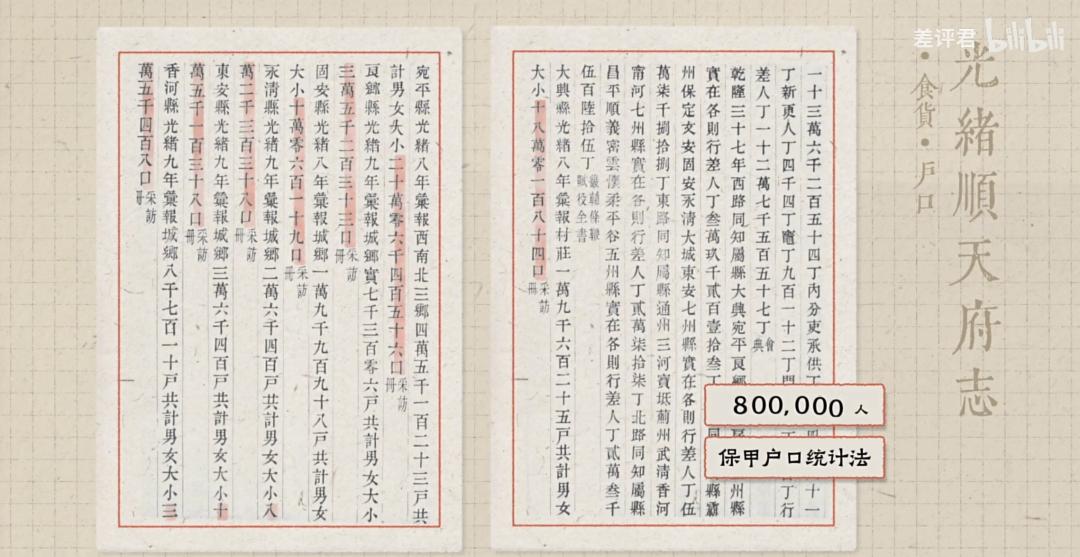 差评君 bilibili
光緒順天府志
·食貨·户口
一十三萬六千二百五十四丁內分吏承供丁
丁新更人丁四千四丁竈丁九百一十二丁
差人丁一十二萬七千五百五十七丁會典
乾隆三十七年西路同知屬縣大興宛平良鄉
實在各則行差人丁叁萬玖千貳百壹拾叁丁
州保定文安固安永淸大城東安七州縣實在各則行差人丁伍
萬柒千捌百捌丁東路同知屬縣通州三河寶坻薊州武淸香河
甯河七州縣實在各則行差人丁貳萬柒拾柒丁北路同知屬縣
昌平順義密雲懷柔平谷五州縣實在各則行差人丁貳萬叁千
伍百陸拾伍丁畿輔條鞭賦役全書
大興縣光緒八年彙報村莊一萬九千六百二十五戸共計男女
大小十八萬零一百八十四口采訪冊
宛平縣光緒八年彙報西南北三鄉四萬五千一百二十三戸共
計男女大小二十萬零六千四百五十六口采訪冊
良鄉縣光緒九年彙報城鄉實七千三百零六戸共計男女大小
三萬五千二百三十三口采訪冊
固安縣光緒八年彙報城鄉一萬九千九百九十八戸共計男女
大小十萬零六百一十九口采訪冊
永淸縣光緒九年彙報城鄉二萬六千四百戸共計男女大小八
萬二千三百三十八口采訪冊
東安縣光緒九年彙報城鄉三萬六千四百戸共計男女大小十
萬五千一百三十八口采訪冊
香河縣光緒九年彙報城鄉八千七百一十戸共計男女大小三
萬五千四百八口采訪冊
800,000 人
保甲户口统计法